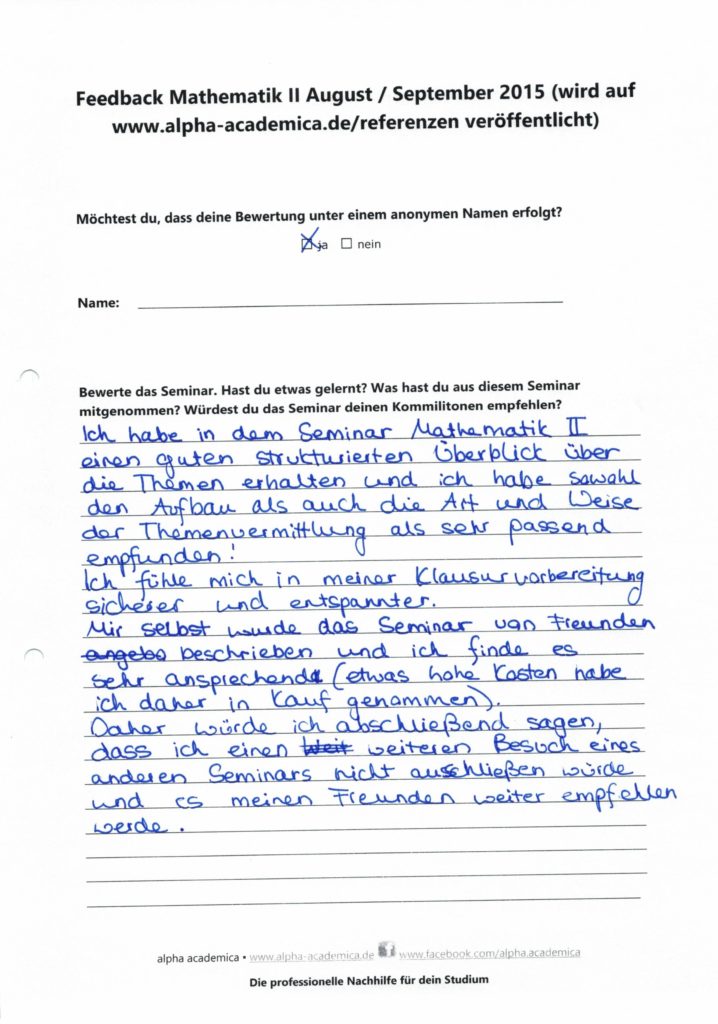 Feedback Mathematik II August / September 2015 (wird auf
www.alpha-academica.de/referenzen veröffentlicht)
Möchtest du, dass deine Bewertung unter einem anonymen Namen erfolgt?
☒ ja ☐ nein
Name:
Bewerte das Seminar. Hast du etwas gelernt? Was hast du aus diesem Seminar
mitgenommen? Würdest du das Seminar deinen Kommilitonen empfehlen?
Ich habe in dem Seminar Mathematik II
einen guten strukturierten Überblick über
die Themen erhalten und ich habe sowohl
den Aufbau als auch die Art und Weise
der Themenvermittlung als sehr passend
empfunden!
Ich fühle mich in meiner Klausurvorbereitung
sicherer und entspannter.
Mir selbst wurde das Seminar von Freunden
angebo beschrieben und ich finde es
sehr ansprechend (etwas hohe Kosten habe
ich daher in Kauf genommen).
Daher würde ich abschließend sagen,
dass ich einen Weit weiteren Besuch eines
anderen Seminars nicht ausschließen würde
und es meinen Freunden weiter empfehlen
werde.
alpha academica • www.alpha-academica.de f www.facebook.com/alpha.academica
Die professionelle Nachhilfe für dein Studium